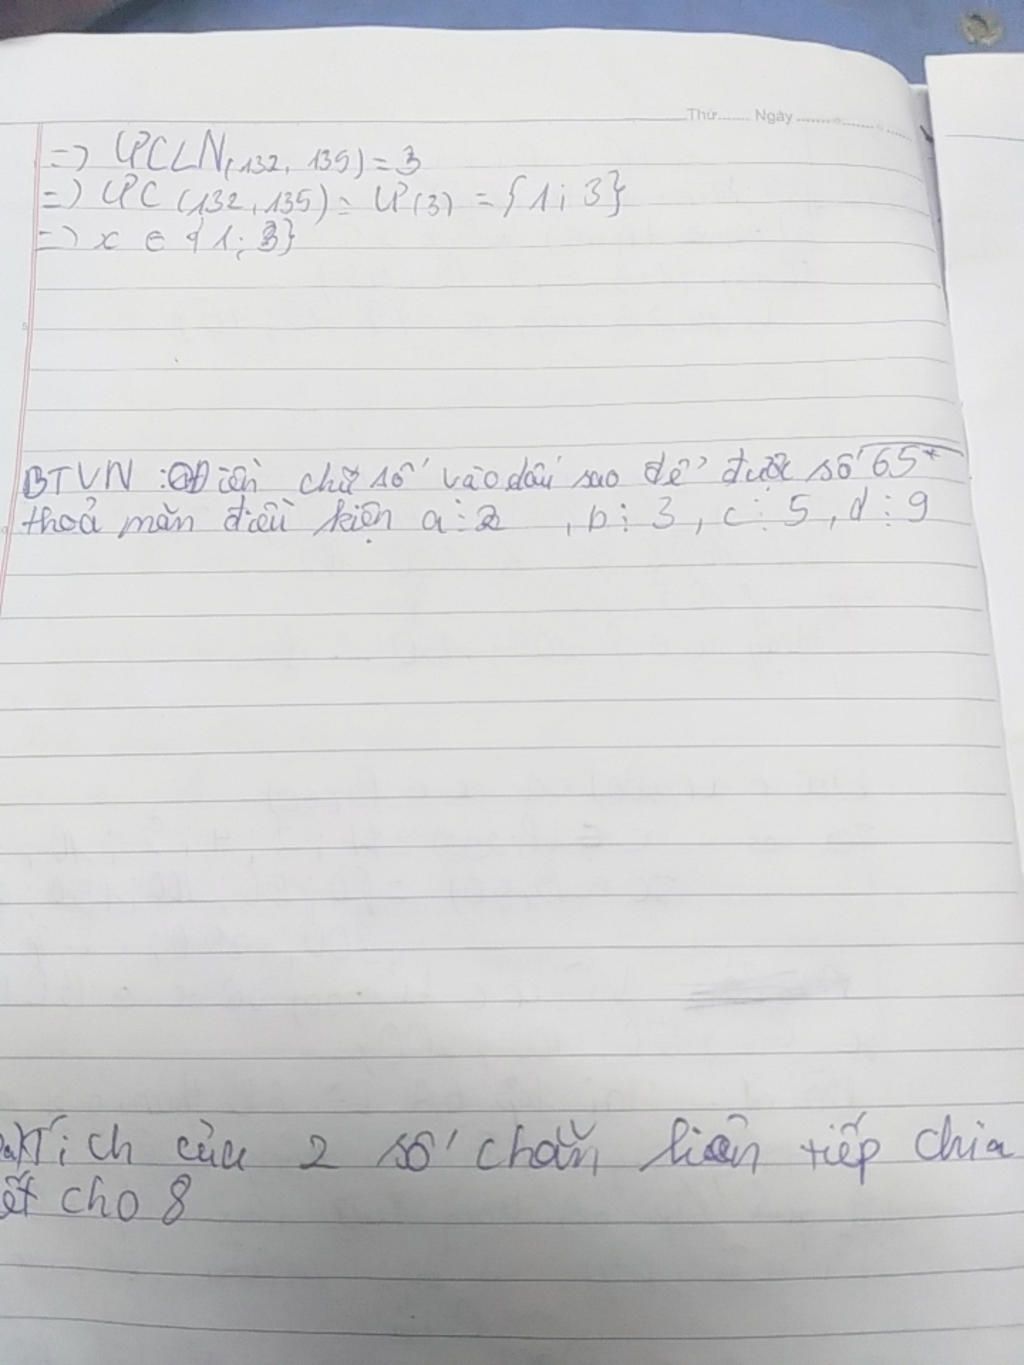 Thứ....... Ngày ...........
=> ƯCLN(132, 135) = 3
=> ƯC (132, 135) = Ư(3) = {1; 3}
=> x ∈ {1; 3}
BTVN: Điền chữ số vào dấu sao để được số 65*
thoả mãn điều kiện a ⋮ 2 , b ⋮ 3, c ⋮ 5, d ⋮ 9
a) Tích của 2 số chẵn liên tiếp chia
ết cho 8